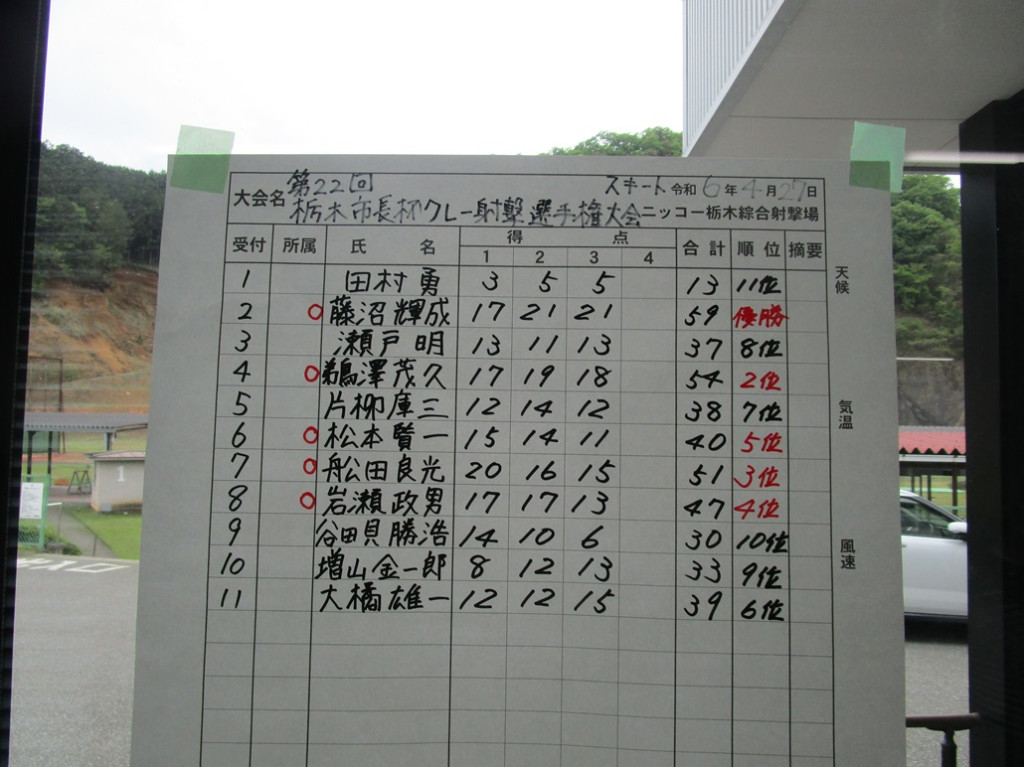 第22回 スキート 令和6年4月27日
大会名 栃木市長杯クレー射撃選手権大会 ニッコー栃木綜合射撃場
受付 所属 氏 名 得 点 合計 順位 摘要
1 2 3 4
1 田村 勇 3 5 5 13 11位
2 ○ 藤沼輝成 17 21 21 59 優勝
3 瀬戸 明 13 11 13 37 8位
4 ○ 鵜澤茂久 17 19 18 54 2位
5 片柳庫三 12 14 12 38 7位
6 ○ 松本賢一 15 14 11 40 5位
7 ○ 舩田良光 20 16 15 51 3位
8 ○ 岩瀬政男 17 17 13 47 4位
9 谷田貝勝浩 14 10 6 30 10位
10 増山金一郎 8 12 13 33 9位
11 大橋雄一 12 12 15 39 6位
天候
気温
風速
1